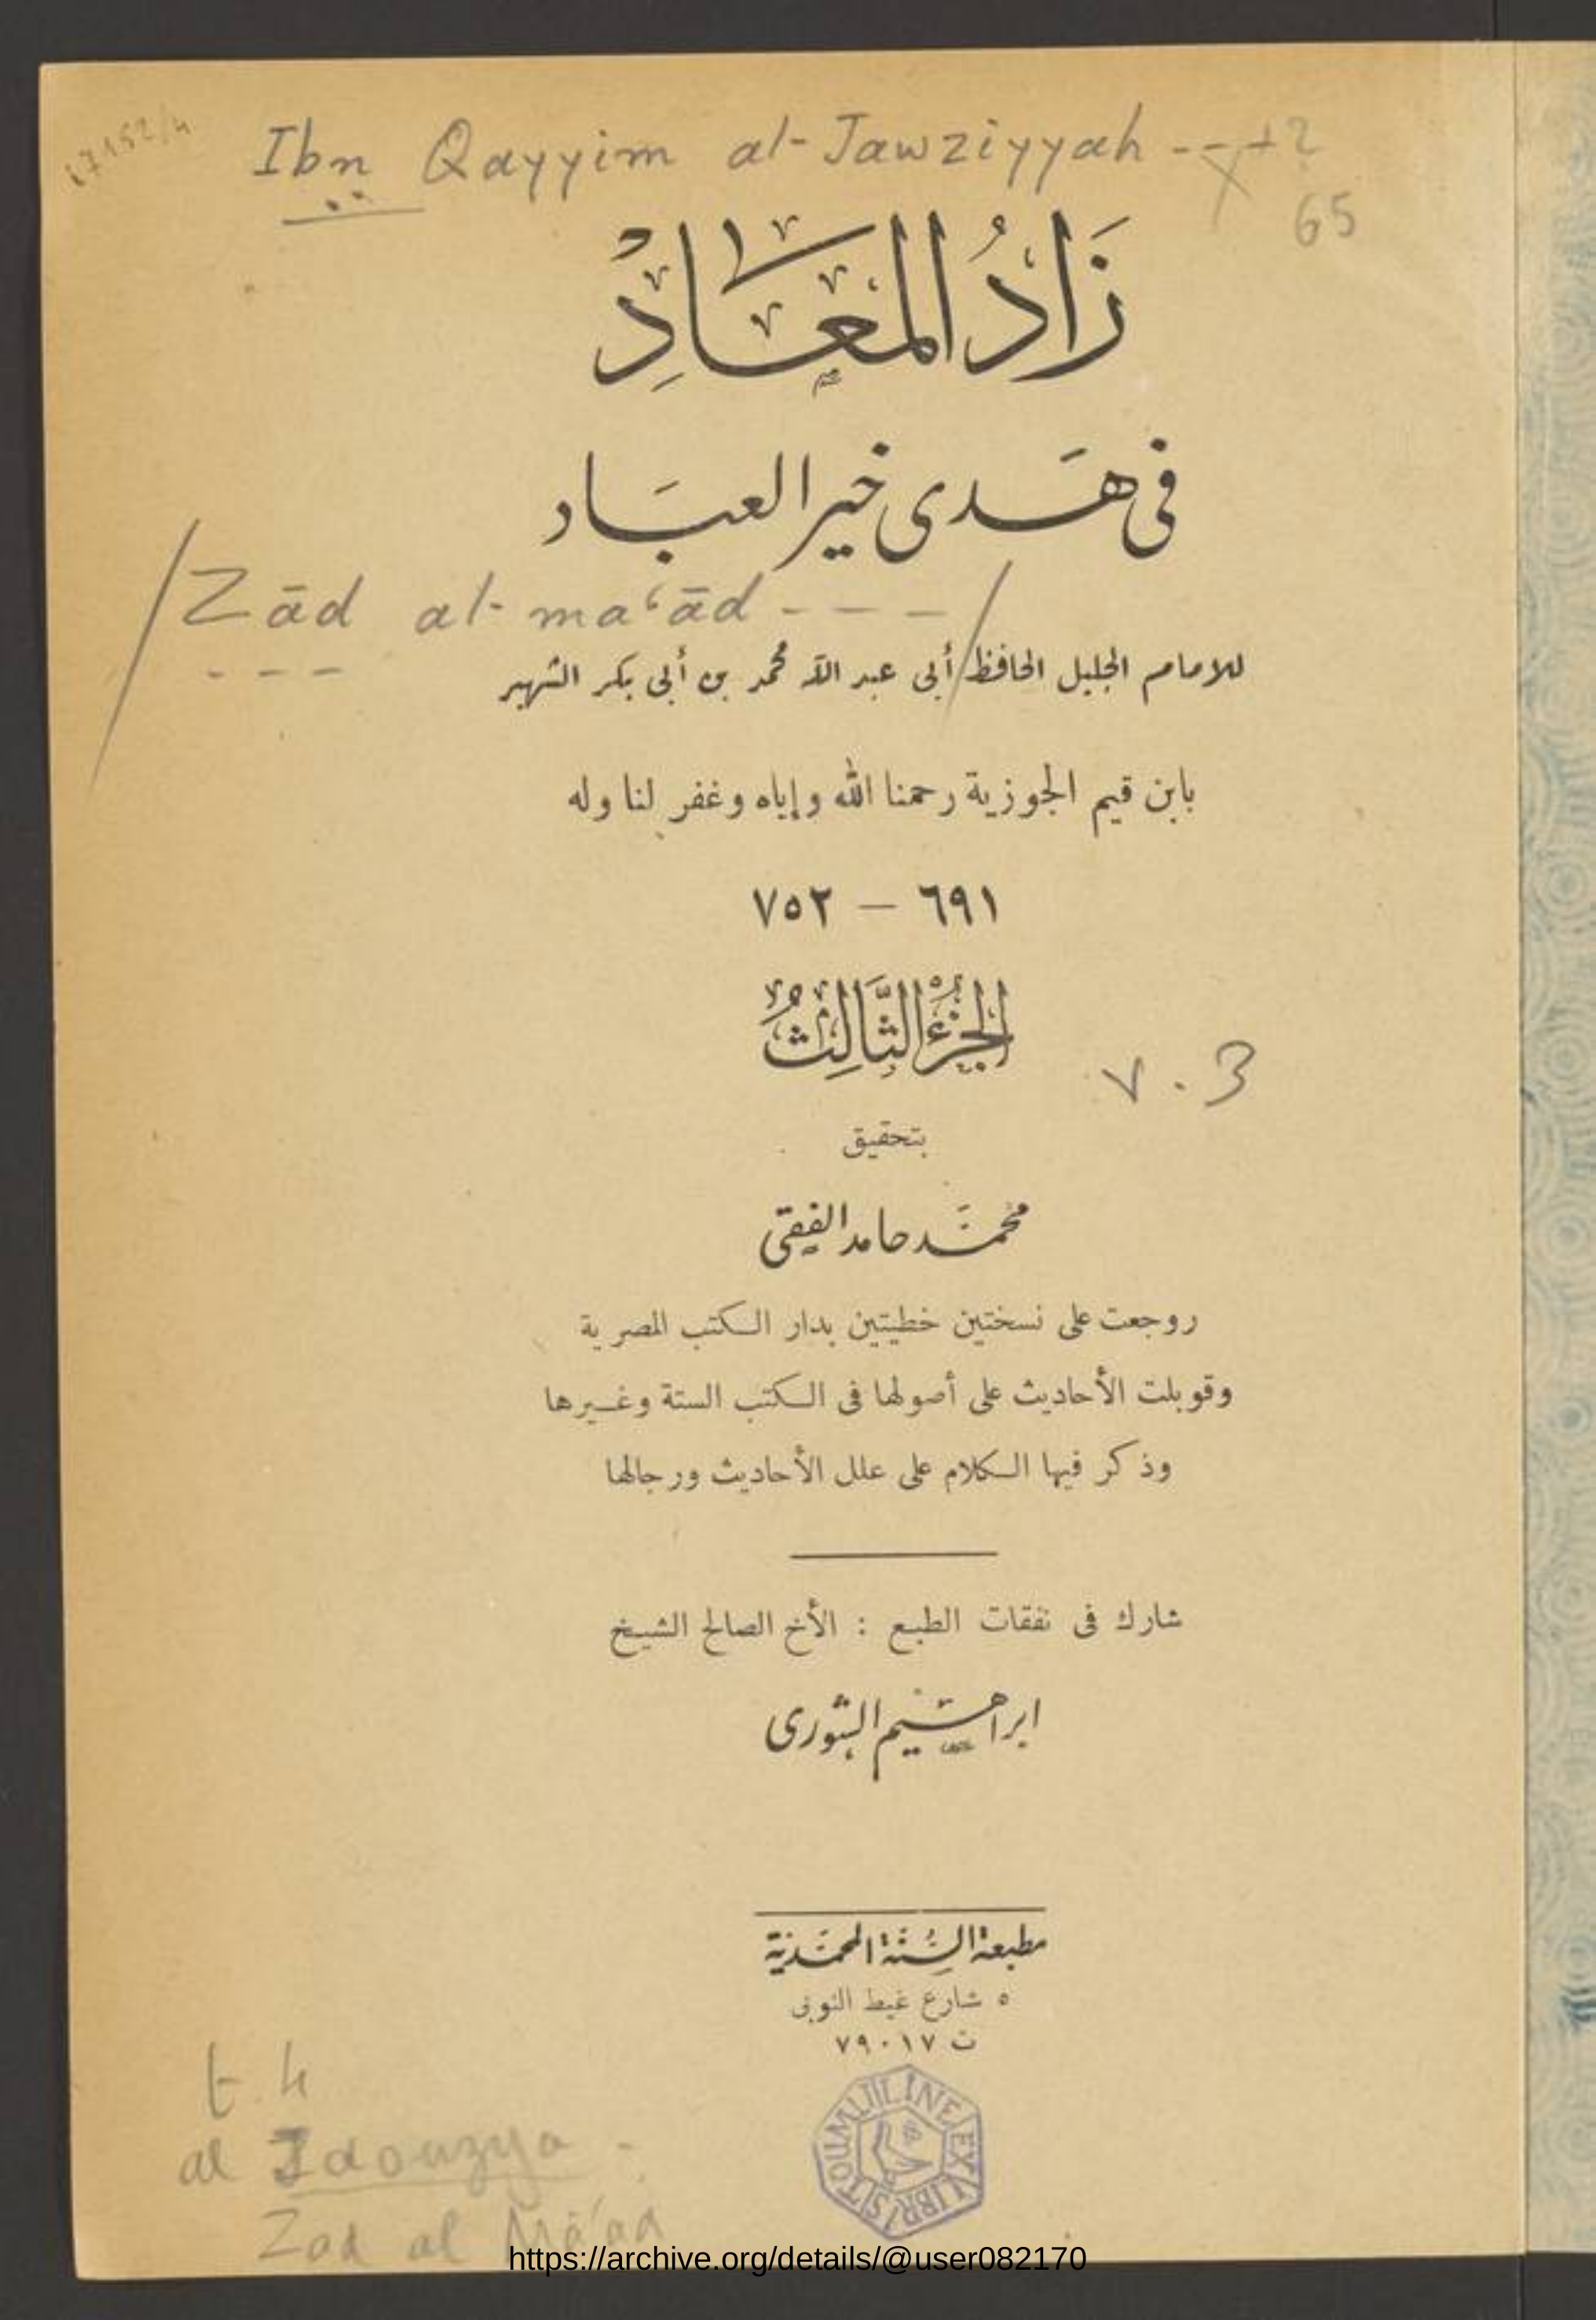 17152/4
Ibn Qayyim al-Jawziyyah - - + 2
65
زَادُ المَعَادِ
فى هَدى خير العبَاد
/ Zād al-ma‘ād - - - /
للامام الجليل الحافظ أبى عبد الله محمد بن أبى بكر الشهير
بابن قيم الجوزية رحمنا الله وإياه وغفر لنا وله
٦٩١ — ٧٥٢
الجُزْءُ الثَّالِثُ
v. 3
بتحقيق
محمَّد حامد الفقى
روجعت على نسختين خطيتين بدار الكتب المصرية
وقوبلت الأحاديث على أصولها فى الكتب الستة وغيرها
وذكر فيها الكلام على علل الأحاديث ورجالها
شارك فى نفقات الطبع : الأخ الصالح الشيخ
ابراهيم الشورى
مطبعة السُّنَّة المحمَّديَّة
٥ شارع غيط النوبى
ت ٧٩٠١٧
TOUMLILINE EX LIBRIS
t. 4
al Jaouzya -
Zad al Mā'ad
https://archive.org/details/@user082170